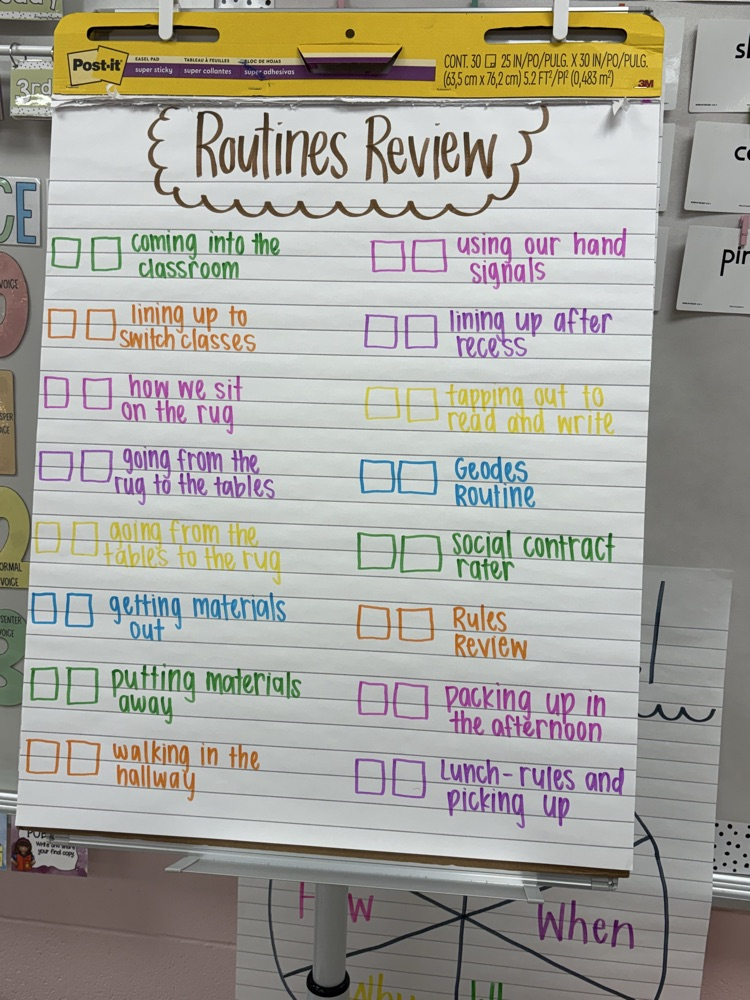 3rd
Post-it
EASEL PAD
super sticky
TABLEAU À FEUILLES
super collantes
BLOC DE HOJAS
super adhesivas
CONT. 30 25 IN/PO/PULG. X 30 IN/PO/PULG.
(63,5 cm x 76,2 cm) 5.2 FT²/PI² (0,483 m²)
3M
Routines Review
coming into the
classroom
lining up to
switch classes
how we sit
on the rug
going from the
rug to the tables
going from the
tables to the rug
getting materials
out
putting materials
away
walking in the
hallway
using our hand
signals
lining up after
recess
tapping out to
read and write
Geodes
Routine
social contract
rater
Rules
Review
packing up in
the afternoon
Lunch-rules and
picking up
CE
VOICE
VOICE
your final copy.
When